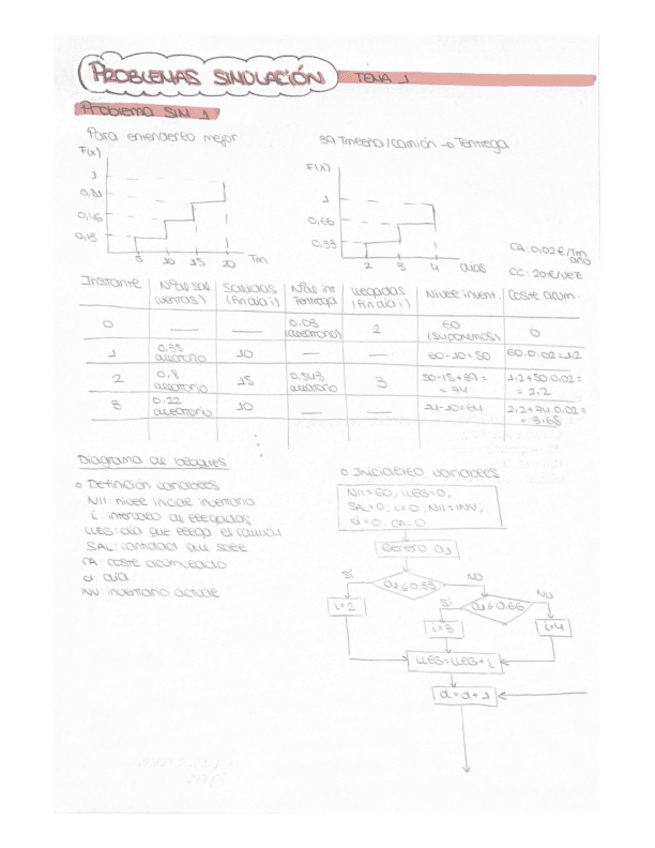 PROBLEMAS SIMULACIÓN
TEMA 1
PROBLEMA SIM 1
Para entenderlo mejor
F(x)
1
0,81
0,46
0,15
5 10 15 20 Tm
Tmedio/camión → Tentrega
F(x)
1
0,66
0,33
2 3 4 días
CA: 0,02€/Tm año
CC: 20€/vez
Instante | Nºal sal (ventas) | Salidas (fin día i) | Nºal int Tentrega | Llegadas (fin día i) | Nivel invent. | Coste acum.
0 | — | — | 0,03 (aleatorio) | 2 | 60 (suponemos) | 0
1 | 0,35 aleatorio | 10 | — | — | 60-10=50 | 60·0,02=1,2
2 | 0,8 aleatorio | 15 | 0,543 aleatorio | 3 | 50-15+39= =74 | 1,2+50·0,02= = 2,2
3 | 0,22 aleatorio | 10 | — | — | 74-10=64 | 2,2+74·0,02= = 3,68
Diagrama de bloques
o Definición variables
NII: nivel inicial inventario
i: intervalo de llegadas
LLEG: día que llega el camión
SAL: cantidad que sale
CA: coste acumulado
d: día
INV: inventario actual
o Inicializo variables
NII=60; LLEG=0;
SAL=0; i=0; NII=INV;
d=0; CA=0
Genero a1
a1≤0,33
SÍ
NO
i=2
a1≤0,66
SÍ
NO
i=3
i=4
LLEG=LLEG+i
d=d+1